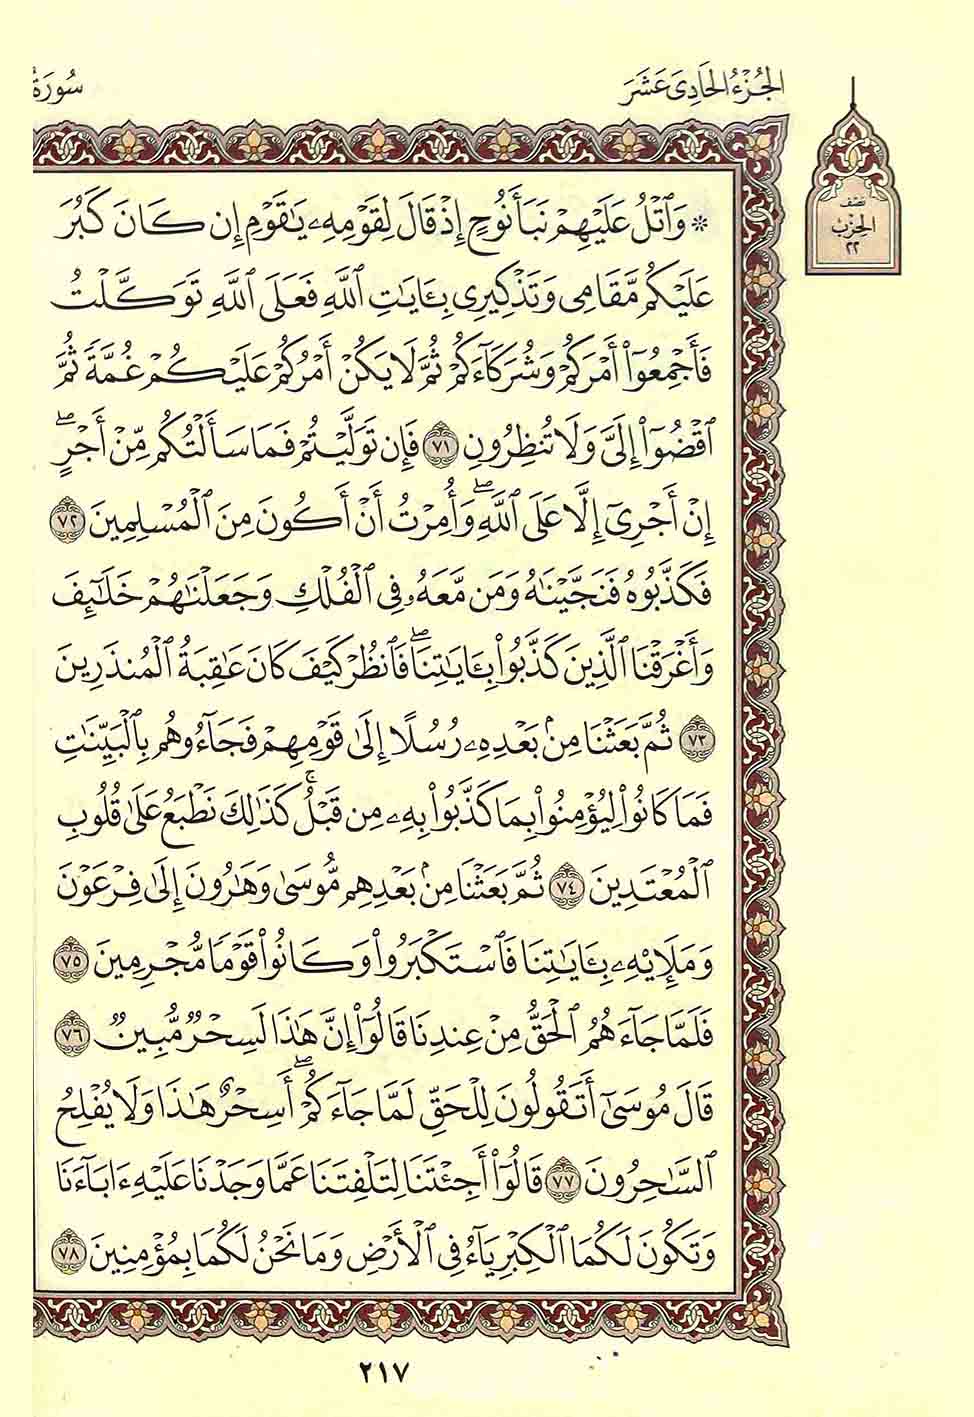 الجُزْءُ الحَادِى عَشَرَ
سُورَةُ
نِصْف
الحِزْب
٢٢
* وَٱتْلُ عَلَيْهِمْ نَبَأَ نُوحٍ إِذْ قَالَ لِقَوْمِهِۦ يَٰقَوْمِ إِن كَانَ كَبُرَ
عَلَيْكُم مَّقَامِى وَتَذْكِيرِى بِـَٔايَٰتِ ٱللَّهِ فَعَلَى ٱللَّهِ تَوَكَّلْتُ
فَأَجْمِعُوٓا۟ أَمْرَكُمْ وَشُرَكَآءَكُمْ ثُمَّ لَا يَكُنْ أَمْرُكُمْ عَلَيْكُمْ غُمَّةً ثُمَّ
ٱقْضُوٓا۟ إِلَىَّ وَلَا تُنظِرُونِ ٧١ فَإِن تَوَلَّيْتُمْ فَمَا سَأَلْتُكُم مِّنْ أَجْرٍ ۖ
إِنْ أَجْرِىَ إِلَّا عَلَى ٱللَّهِ ۖ وَأُمِرْتُ أَنْ أَكُونَ مِنَ ٱلْمُسْلِمِينَ ٧٢
فَكَذَّبُوهُ فَنَجَّيْنَٰهُ وَمَن مَّعَهُۥ فِى ٱلْفُلْكِ وَجَعَلْنَٰهُمْ خَلَٰٓئِفَ
وَأَغْرَقْنَا ٱلَّذِينَ كَذَّبُوا۟ بِـَٔايَٰتِنَا ۖ فَٱنظُرْ كَيْفَ كَانَ عَٰقِبَةُ ٱلْمُنذَرِينَ
٧٣ ثُمَّ بَعَثْنَا مِنۢ بَعْدِهِۦ رُسُلًا إِلَىٰ قَوْمِهِمْ فَجَآءُوهُم بِٱلْبَيِّنَٰتِ
فَمَا كَانُوا۟ لِيُؤْمِنُوا۟ بِمَا كَذَّبُوا۟ بِهِۦ مِن قَبْلُ ۚ كَذَٰلِكَ نَطْبَعُ عَلَىٰ قُلُوبِ
ٱلْمُعْتَدِينَ ٧٤ ثُمَّ بَعَثْنَا مِنۢ بَعْدِهِم مُّوسَىٰ وَهَٰرُونَ إِلَىٰ فِرْعَوْنَ
وَمَلَإِي۟هِۦ بِـَٔايَٰتِنَا فَٱسْتَكْبَرُوا۟ وَكَانُوا۟ قَوْمًا مُّجْرِمِينَ ٧٥
فَلَمَّا جَآءَهُمُ ٱلْحَقُّ مِنْ عِندِنَا قَالُوٓا۟ إِنَّ هَٰذَا لَسِحْرٌ مُّبِينٌ ٧٦
قَالَ مُوسَىٰٓ أَتَقُولُونَ لِلْحَقِّ لَمَّا جَآءَكُمْ ۖ أَسِحْرٌ هَٰذَا وَلَا يُفْلِحُ
ٱلسَّٰحِرُونَ ٧٧ قَالُوٓا۟ أَجِئْتَنَا لِتَلْفِتَنَا عَمَّا وَجَدْنَا عَلَيْهِ ءَابَآءَنَا
وَتَكُونَ لَكُمَا ٱلْكِبْرِيَآءُ فِى ٱلْأَرْضِ وَمَا نَحْنُ لَكُمَا بِمُؤْمِنِينَ ٧٨
٢١٧